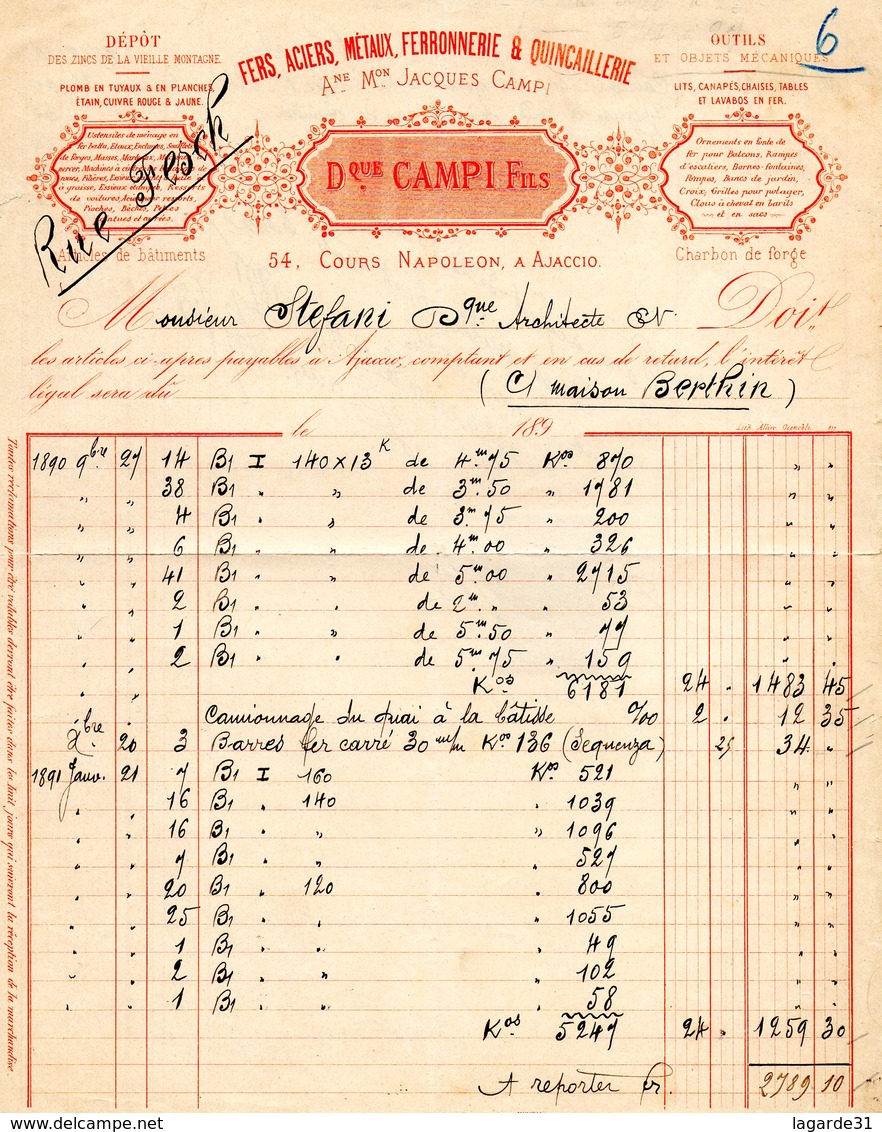 6
DÉPÔT
DES ZINCS DE LA VIEILLE MONTAGNE
PLOMB EN TUYAUX & EN PLANCHES,
ÉTAIN, CUIVRE ROUGE & JAUNE.
Ustensiles de ménage en
fer battu, Étaux, Enclumes, Soufflets
de forges, Masses, Marteaux,
à graisse, Essieux
de voitures,
Pioches, Bêches, Pelles
Articles de bâtiments
Rue Fesch
FERS, ACIERS, MÉTAUX, FERRONNERIE & QUINCAILLERIE
Ane Mon Jacques Campi
Dque CAMPI Fils
54, Cours Napoleon, a Ajaccio.
OUTILS
ET OBJETS MÉCANIQUES
LITS, CANAPÉS, CHAISES, TABLES
ET LAVABOS EN FER.
Ornements en fonte de
fer pour Balcons, Rampes
d'escaliers, Bornes-fontaines,
Pompes, Bancs de jardin,
Croix, Grilles pour potager,
Clous à cheval en barils
et en sacs
Charbon de forge
Monsieur Stefani Dque Architecte Doit
les articles ci-apres payables à Ajaccio, comptant et en cas de retard, l'intérêt
légal sera dû
(C/ maison Berthin)
le 189
Toutes réclamations pour être valables devront être faites dans les huit jours qui suivront la réception de la marchandise.
1890 9bre 27 14 B1 I 140 x 13 K de 4m75 Kos 870 " "
" " 38 B1 " " de 3m50 " 1781 " "
" " 4 B1 " " de 3m75 " 200 " "
" " 6 B1 " " de 4m00 " 326 " "
" " 41 B1 " " de 5m00 " 2715 " "
" " 2 B1 " " de 2m " " 53 " "
" " 1 B1 " " de 5m50 " 77 " "
" " 2 B1 " " de 5m75 " 159 " "
" " Kos 6181 24 " 1483 45
" Camionnage du quai à la bâtisse %00 2 " 12 35
Xbre 20 3 Barres fer carré 30 m/m Kos 136 (Sequenza) 25 34 "
1891 Janv. 21 7 B1 I 160 Kos 521
" " 16 B1 " 140 " 1039 " "
" " 16 B1 " " " 1096 " "
" " 7 B1 " " " 527 " "
" " 20 B1 " 120 " 800 " "
" " 25 B1 " " " 1055 " "
" " 1 B1 " " " 49 " "
" " 2 B1 " " " 102 " "
" " 1 B1 " " " 58 " "
Kos 5247 24 " 1259 30
A reporter fr. 2789 10
delcampe.net
lagarde31